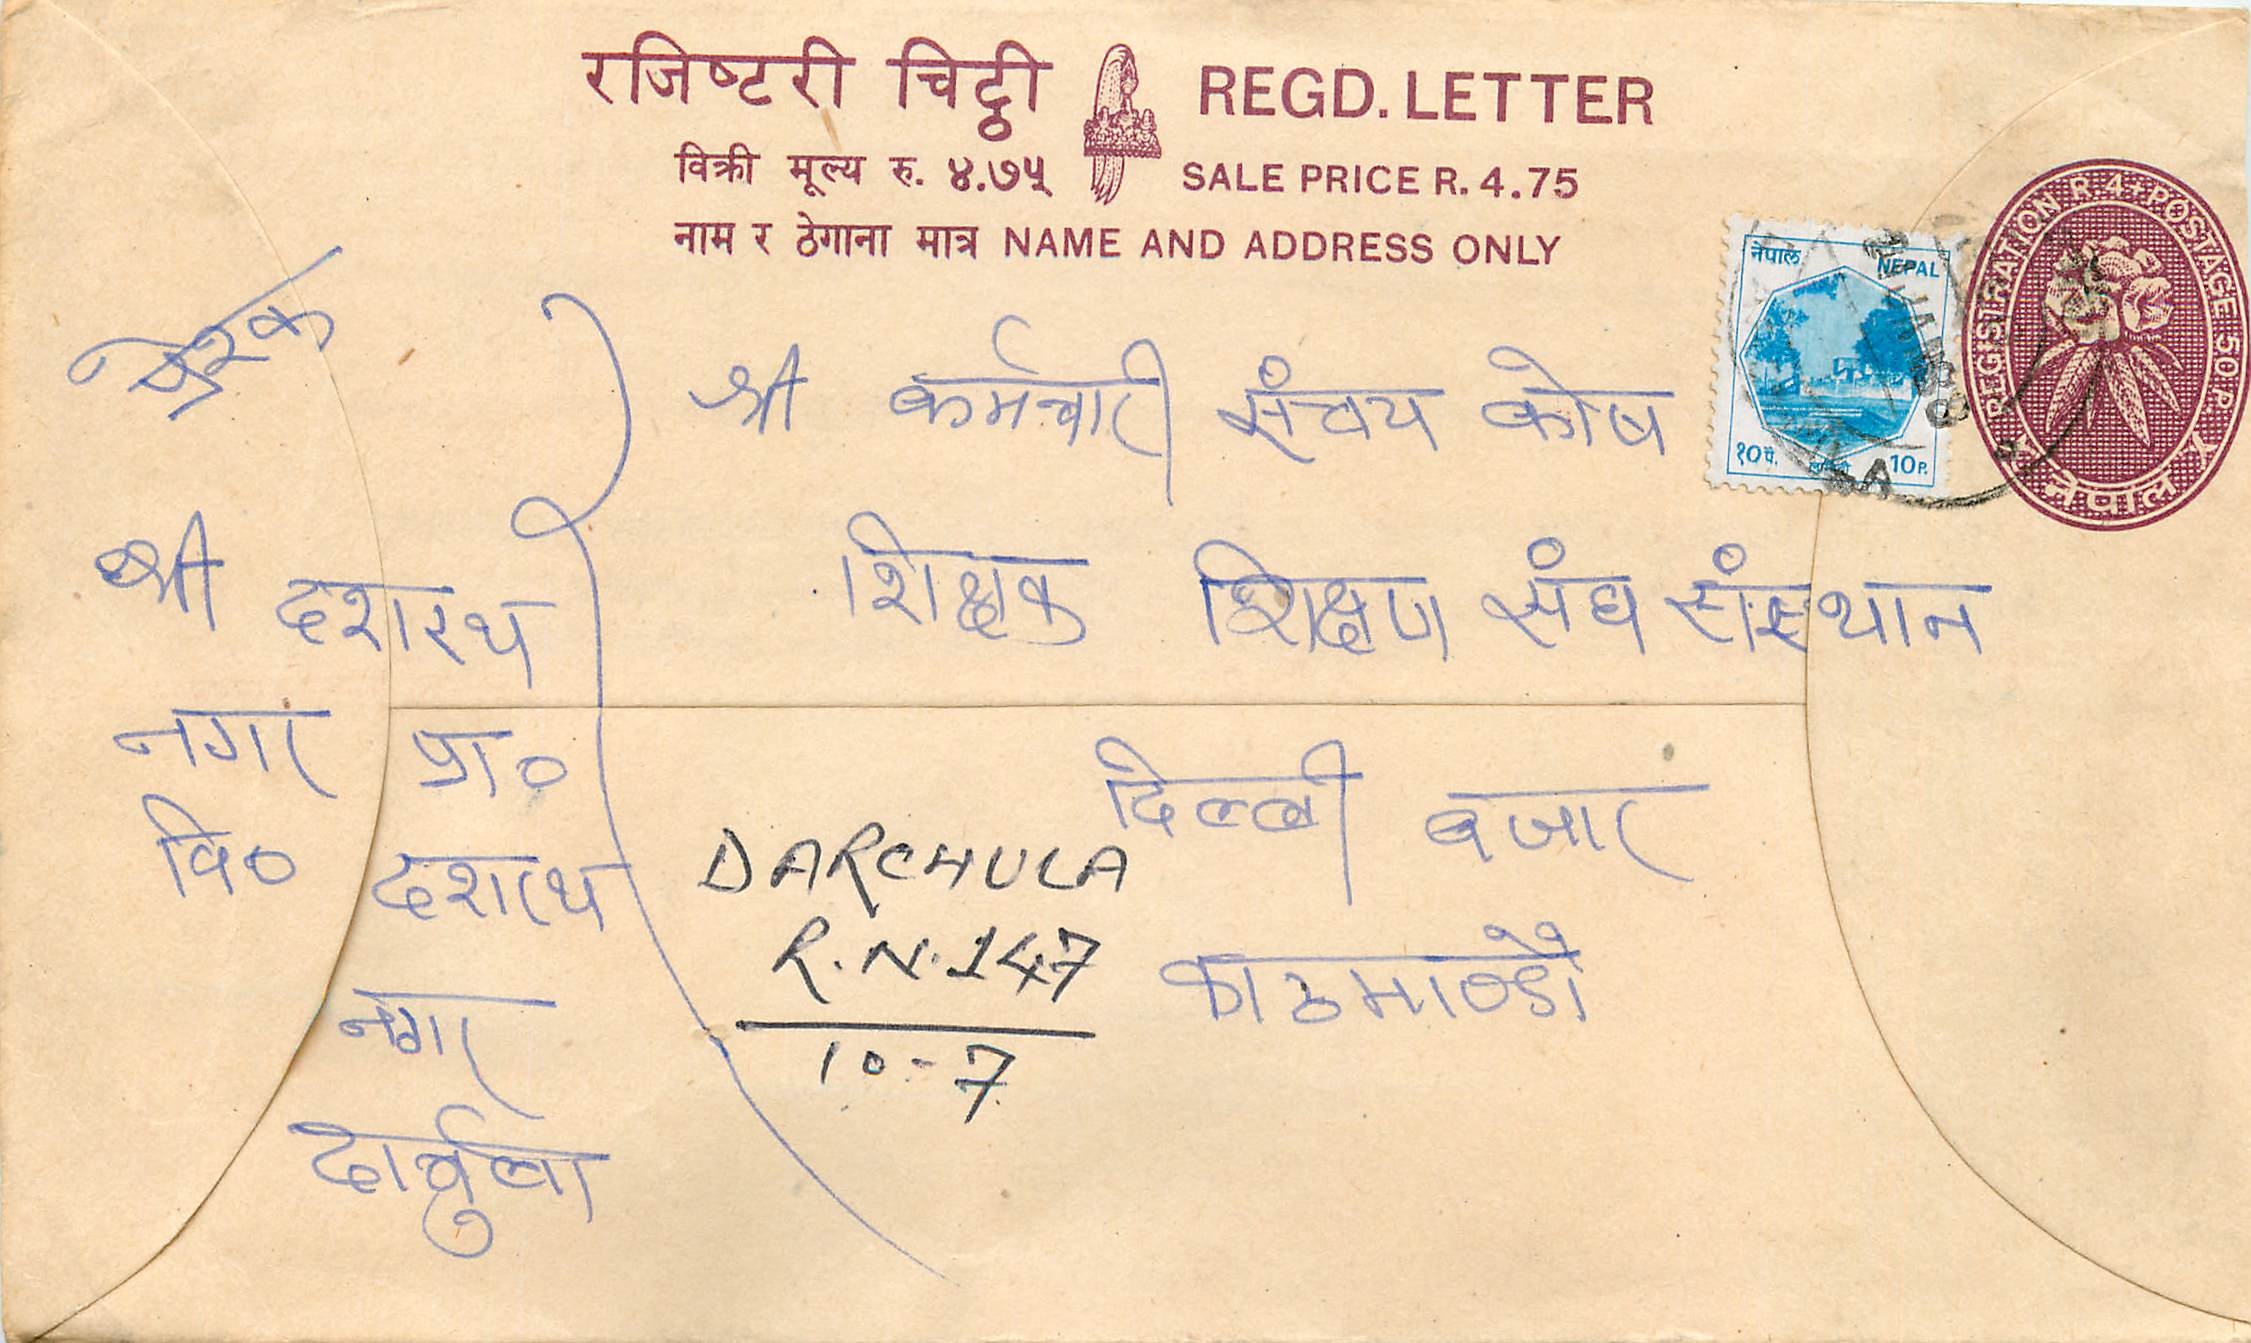 रजिष्टरी चिट्ठी REGD. LETTER
विक्री मूल्य रु. ४.७५ SALE PRICE R. 4.75
नाम र ठेगाना मात्र NAME AND ADDRESS ONLY
REGISTRATION R. 4+POSTAGE 50 P.
नेपाल
नेपाल NEPAL
१० पै. 10 P.
प्रेषक
श्री दशरथ
नगर प्रा०
वि० दशरथ
नगर
दार्चुला
श्री कर्मचारी संचय कोष
शिक्षक शिक्षण संघ संस्थान
दिल्ली बजार
काठमाण्डौ
DARCHULA
R.N. 147
10-7